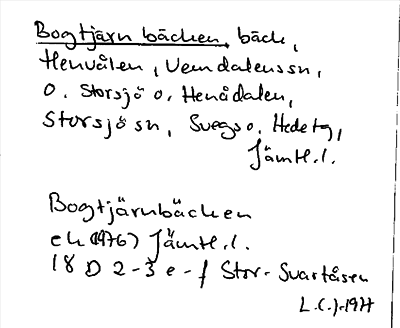 Bogtjärnbäcken, bäck,
Henvålen, Vemdalens sn,
o. Storsjö o. Henådalen,
Storsjö sn, Svegs o. Hede tg,
Jämtl. l.
Bogtjärnbäcken
ek (1976) Jämtl. l.
18 D 2-3 e-f Stor-Svartåsen
L.C.J. 1977